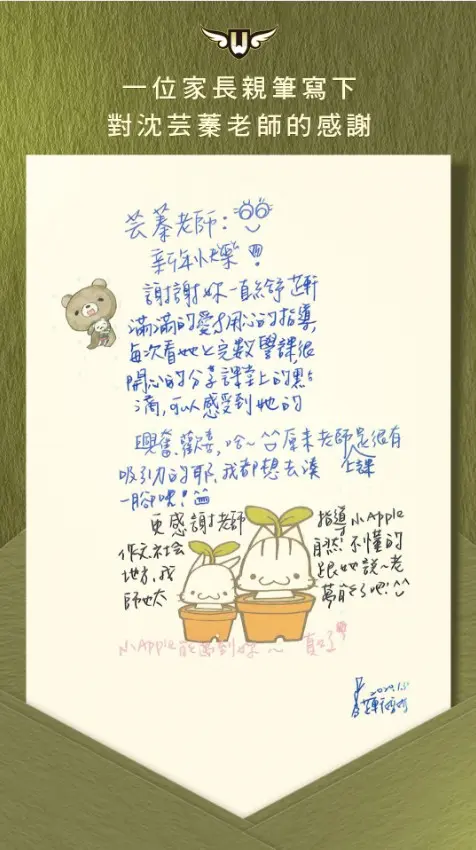 W
一位家長親筆寫下
對沈芸蓁老師的感謝
芸蓁老師：
新年快樂！
謝謝妳一直給予芷軒
滿滿的愛&用心的指導，
每次看她上完數學課很
開心的分享課堂上的點點
滴滴，可以感受到她的
興奮、歡喜，哈～原來老師是很有
吸引力的耶，我都想去湊 上課
一腳咧！
更感謝老師 指導小Apple
作文、社会 自然！不懂的
地方，我 跟她說～老
師也太 萬能了吧！^^
小Apple能遇到妳～真好
2020.1.5